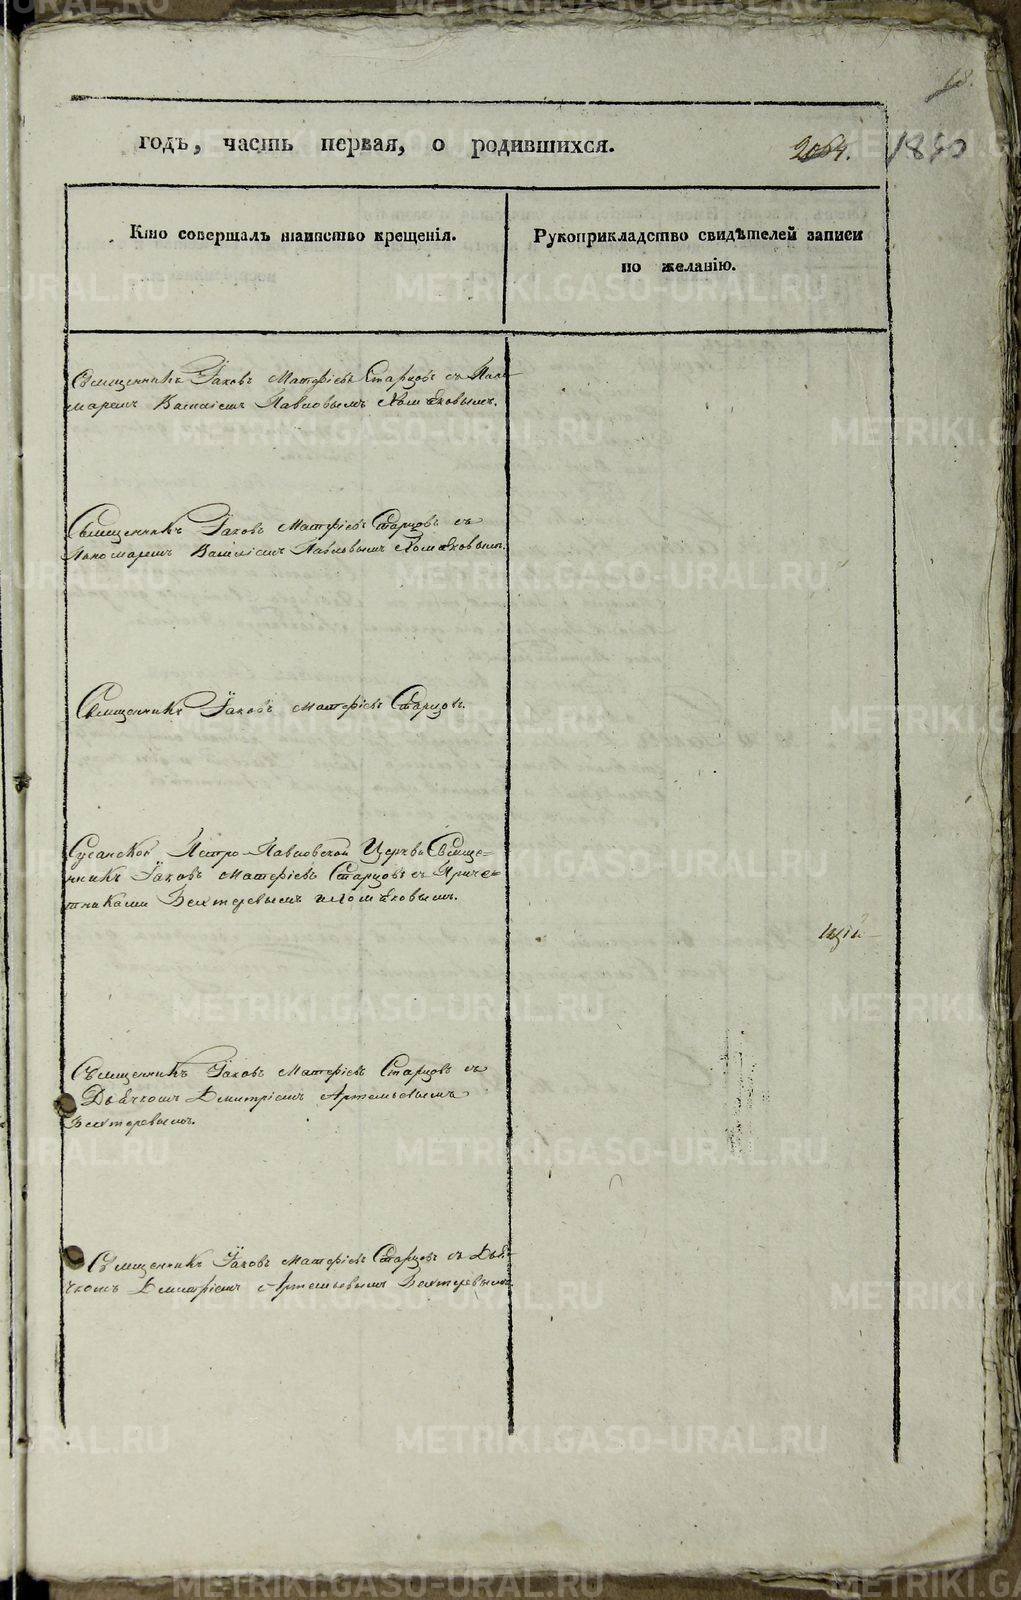 годъ, часть первая, о родившихся.
1840
Кто совершалъ таинство крещенія.
Рукоприкладство свидѣтелей записи
по желанію.
Священникъ Іаковъ Матфіевъ Старцовъ съ Поно-
маремъ Василіемъ Павловымъ Хомяковымъ.
Священникъ Іаковъ Матфіевъ Старцовъ съ
Пономаремъ Василіемъ Павловымъ Хомяковымъ.
Священникъ Іаковъ Матфіевъ Старцовъ.
Сусанской Петро-Павловской Церкви Священ=
никъ Іаковъ Матфіевъ Старцовъ съ Причет-
никами Бехтеревымъ и Хомяковымъ.
Священникъ Іаковъ Матфіевъ Старцовъ съ
Дьячкомъ Димитріемъ Артемьевымъ
Бехтеревымъ.
Священникъ Іаковъ Матфіевъ Старцовъ съ Дья-
чкомъ Димитріемъ Артемьевымъ Бехтеревымъ
METRIKI.GASO-URAL.RU